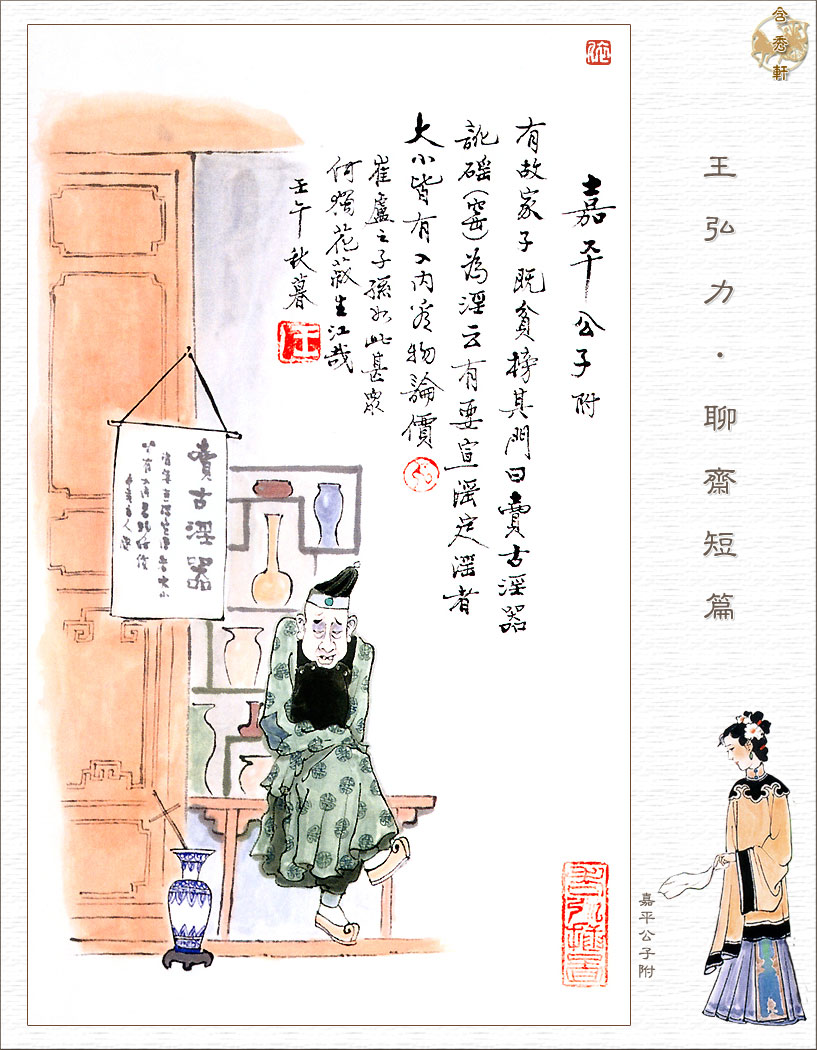 含秀軒
王弘力·聊齋短篇
嘉平公子附
有故家子既貧榜其門曰賣古淫器
訛磘(窰)為淫云有要宣淫定淫者
大小皆有入內看物論價
崔盧之子孫如此甚眾
何獨花菽生江哉
壬午秋暮
王
賣古淫器
嘉平公子附